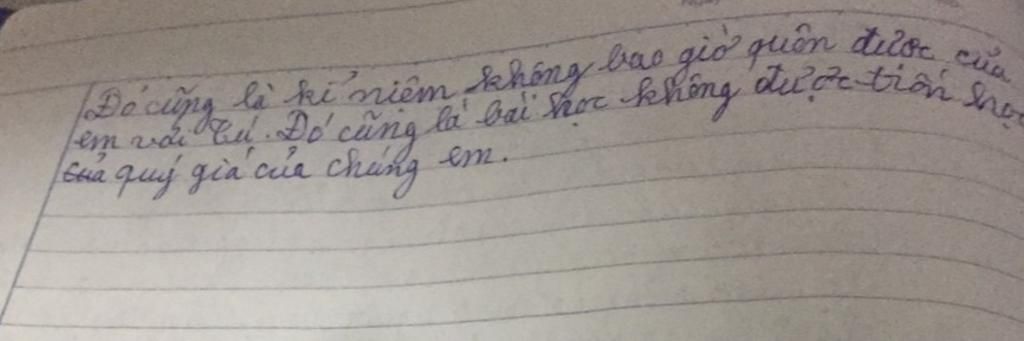 Đó cũng là kỉ niệm không bao giờ quên được của
em với Tú. Đó cũng là bài học không được trốn học
quý giá của chúng em.